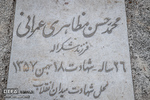 محمد حسن مظاهری عمرانی
فرزند شکراله
۲۶ ساله شهادت ۱۸ بهمن ۱۳۵۷
محل شهادت میدان انقلاب